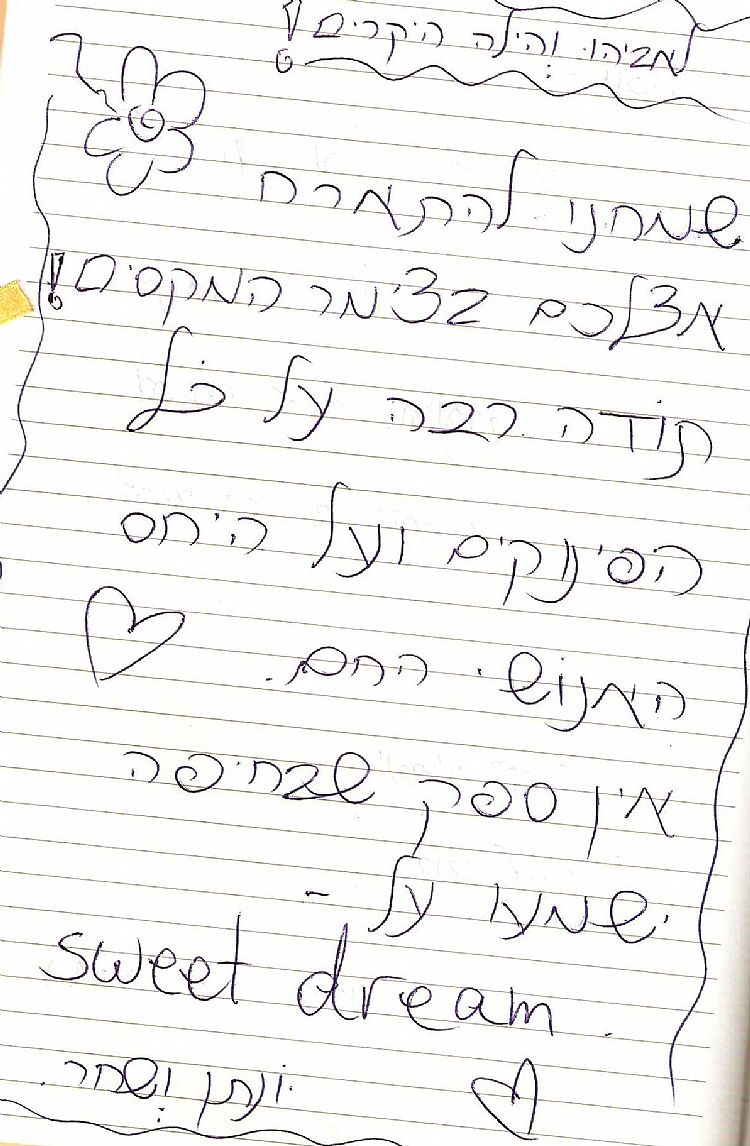 לאביהו והילה היקרים!
שמחנו להתארח
אצלכם בצימר המקסים!
תודה רבה על כל
הפינוקים ועל היחס
האנושי החם.
אין ספק שבחיפה
ישמעו על -
sweet dream.
יונתן ושחר.